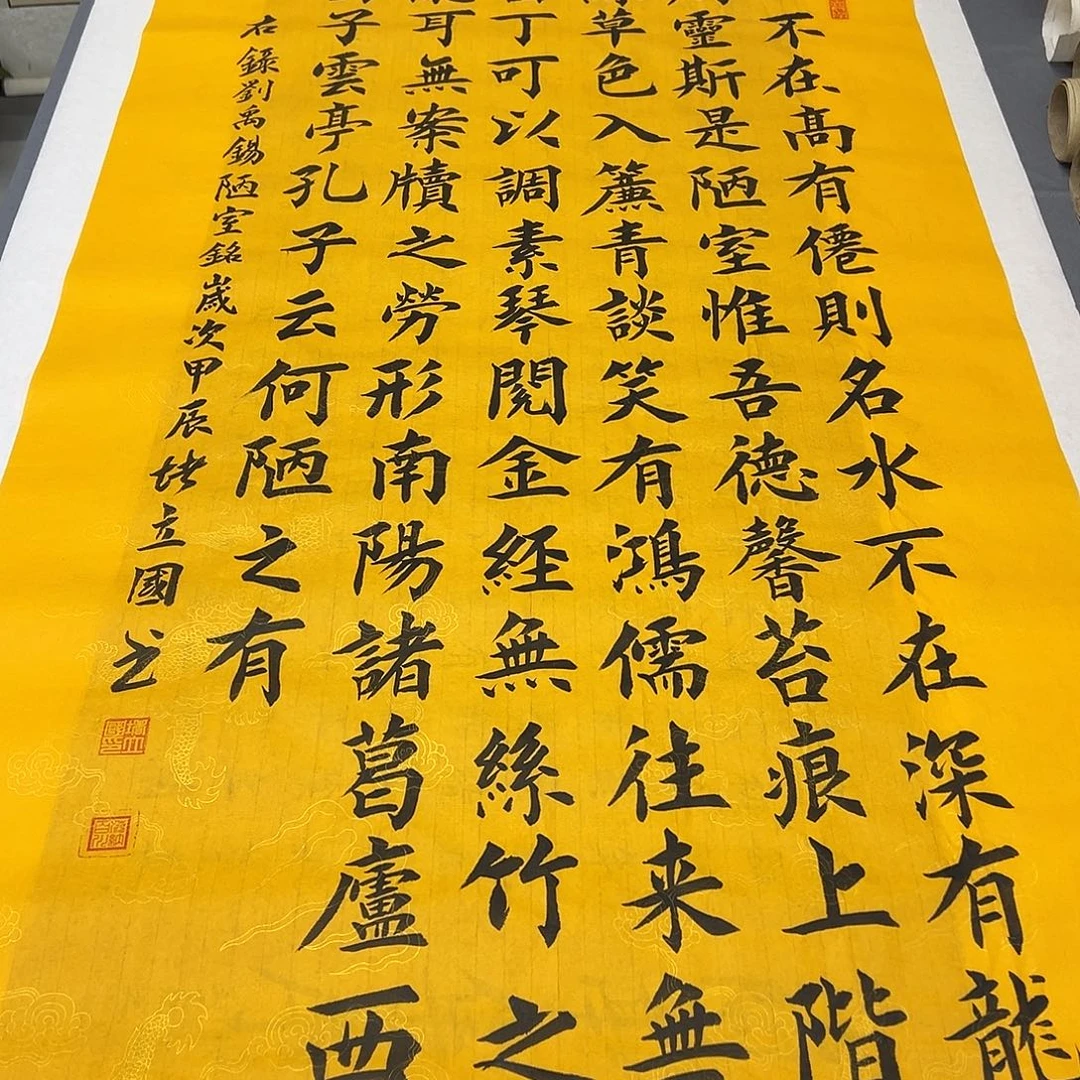 不在髙有僊則名水不在深有龍
靈斯是陋室惟吾德馨苔痕上階
草色入簾青談笑有鴻儒往来無
丁可以調素琴閱金經無絲竹之
耳無案牘之勞形南陽諸葛廬西
子雲亭孔子云何陋之有
右錄劉禹錫陋室銘歲次甲辰立國书